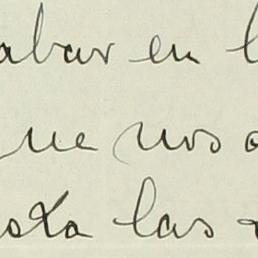 abar en l
ue nos a
sta las